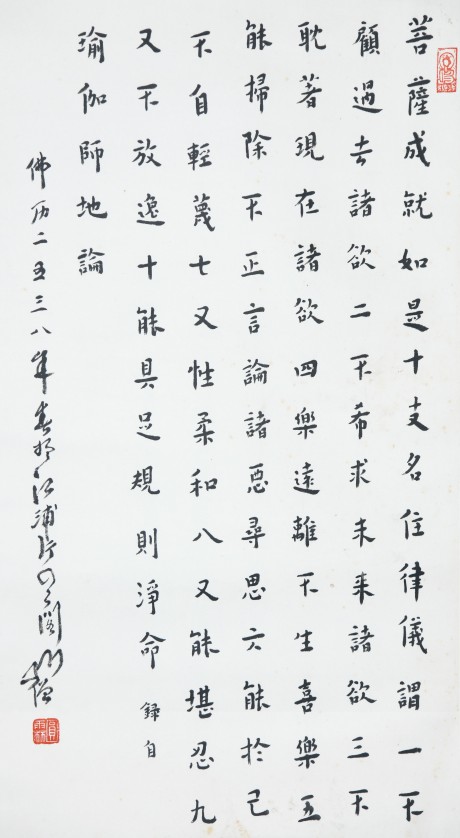 菩薩成就如是十支名住律儀謂一不
顧過去諸欲二不希求未来諸欲三不
耽著現在諸欲四樂遠離不生喜樂五
能掃除不正言論諸惡尋思六能於己
不自輕蔑七又性柔和八又能堪忍九
又不放逸十能具足規則淨命錄自
瑜伽師地論
佛历二五三八年春於江浦